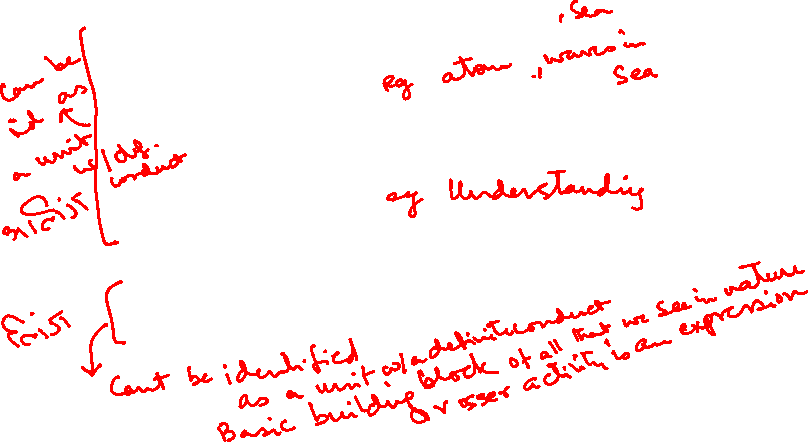 Can be
id as
a unit
w/def.
conduct
eg atom, waves in
Sea
, Sea
eg Understanding
Exist
Can't be identified
as a unit w/a definite conduct
Basic building block of all that we see in nature
grosser activity is an expression